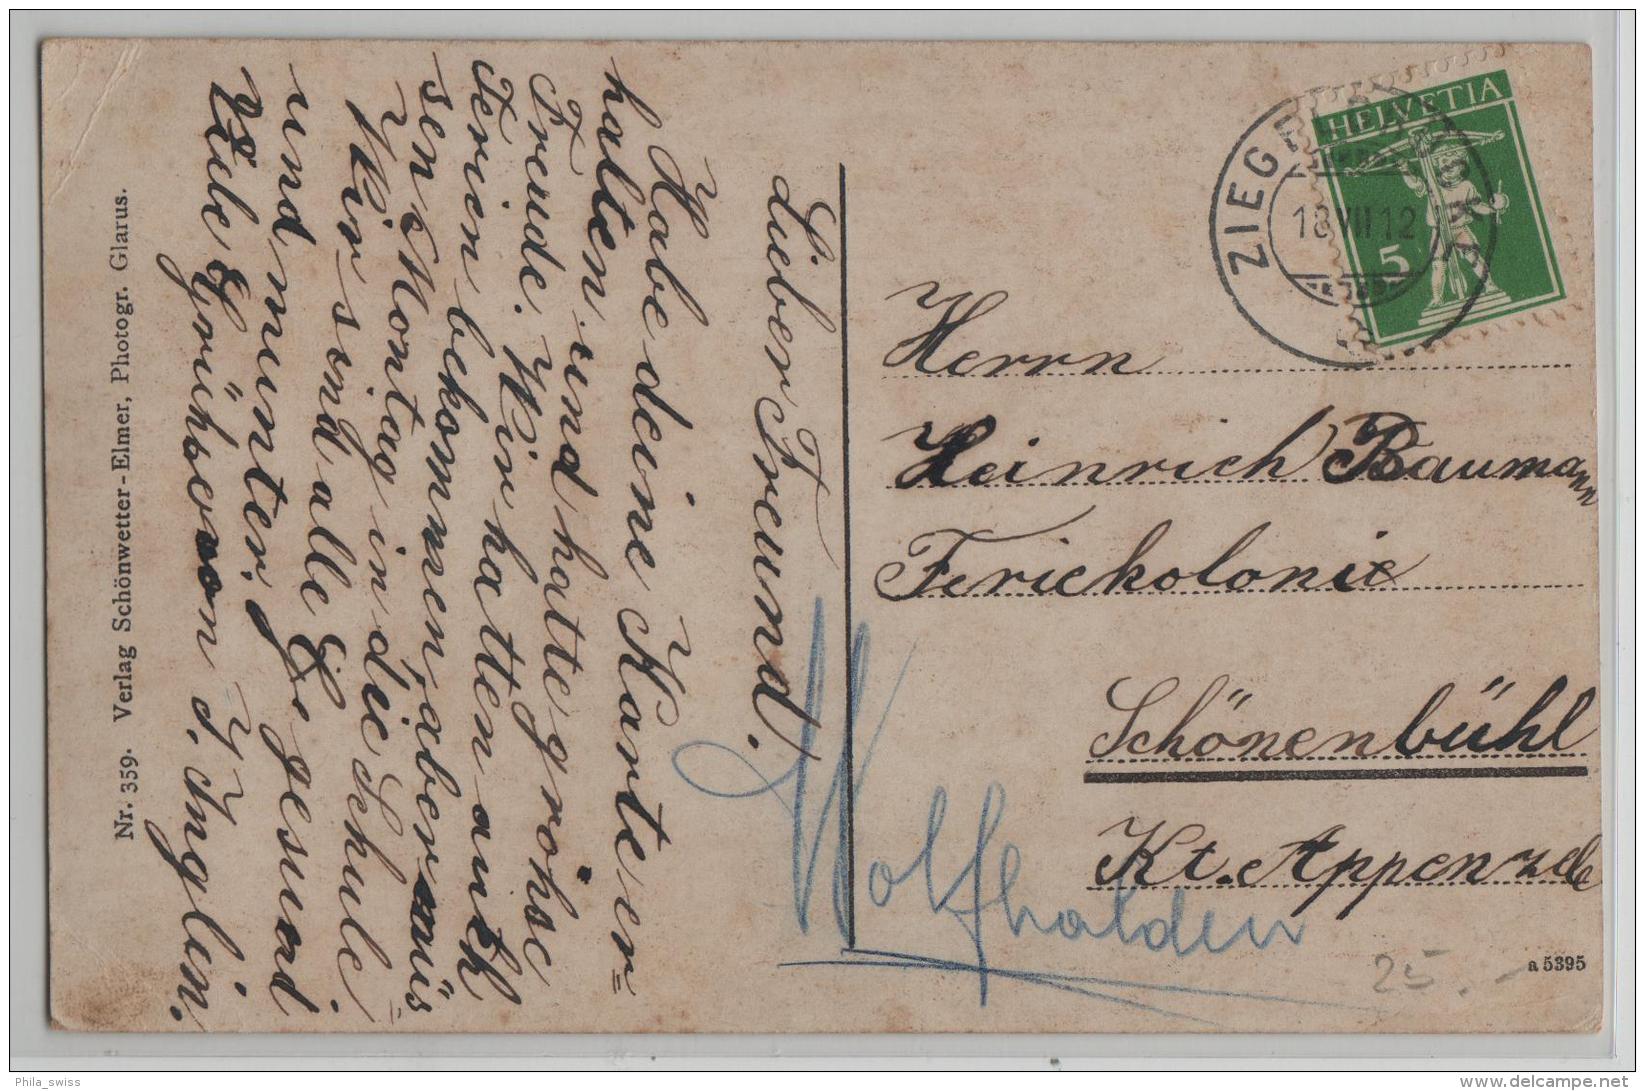 Nr. 359. Verlag Schönwetter-Elmer, Photogr. Glarus.
S.
Lieber Freund.
Habe deine Karte er=
halten und hatte grohse
Freude. Wir hatten auch
Ferien bekommen, aber müs
sen Montag in die Schule.
Wir sind alle gesund
und munter.
Viele Grühse von J. Inglin.
HELVETIA
5
18 VII 12
Herrn
Heinrich Baumann
Feriekolonie
Schönenbühl
Kt. Appenzell
Wolfhalden
25.-
a 5395
Phila_swiss
www.delcampe.net